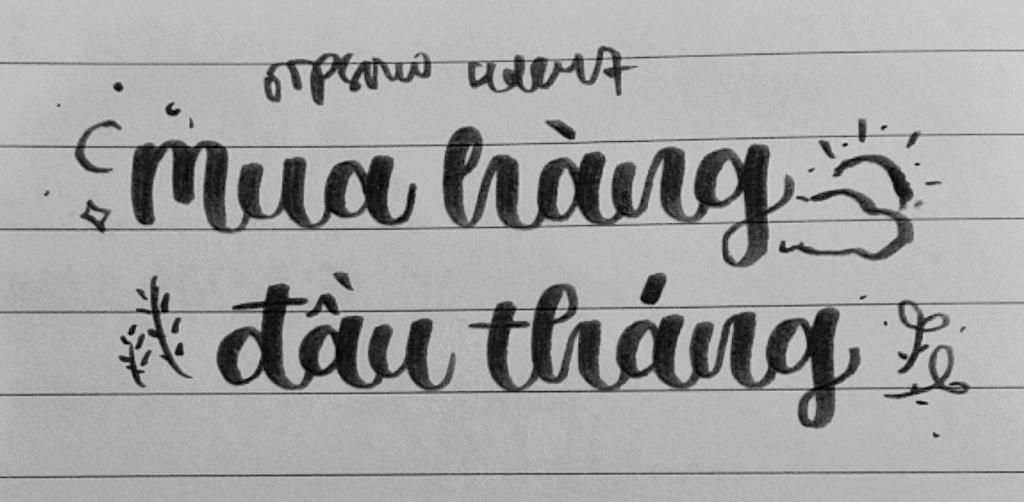 mua hàng
đầu tháng